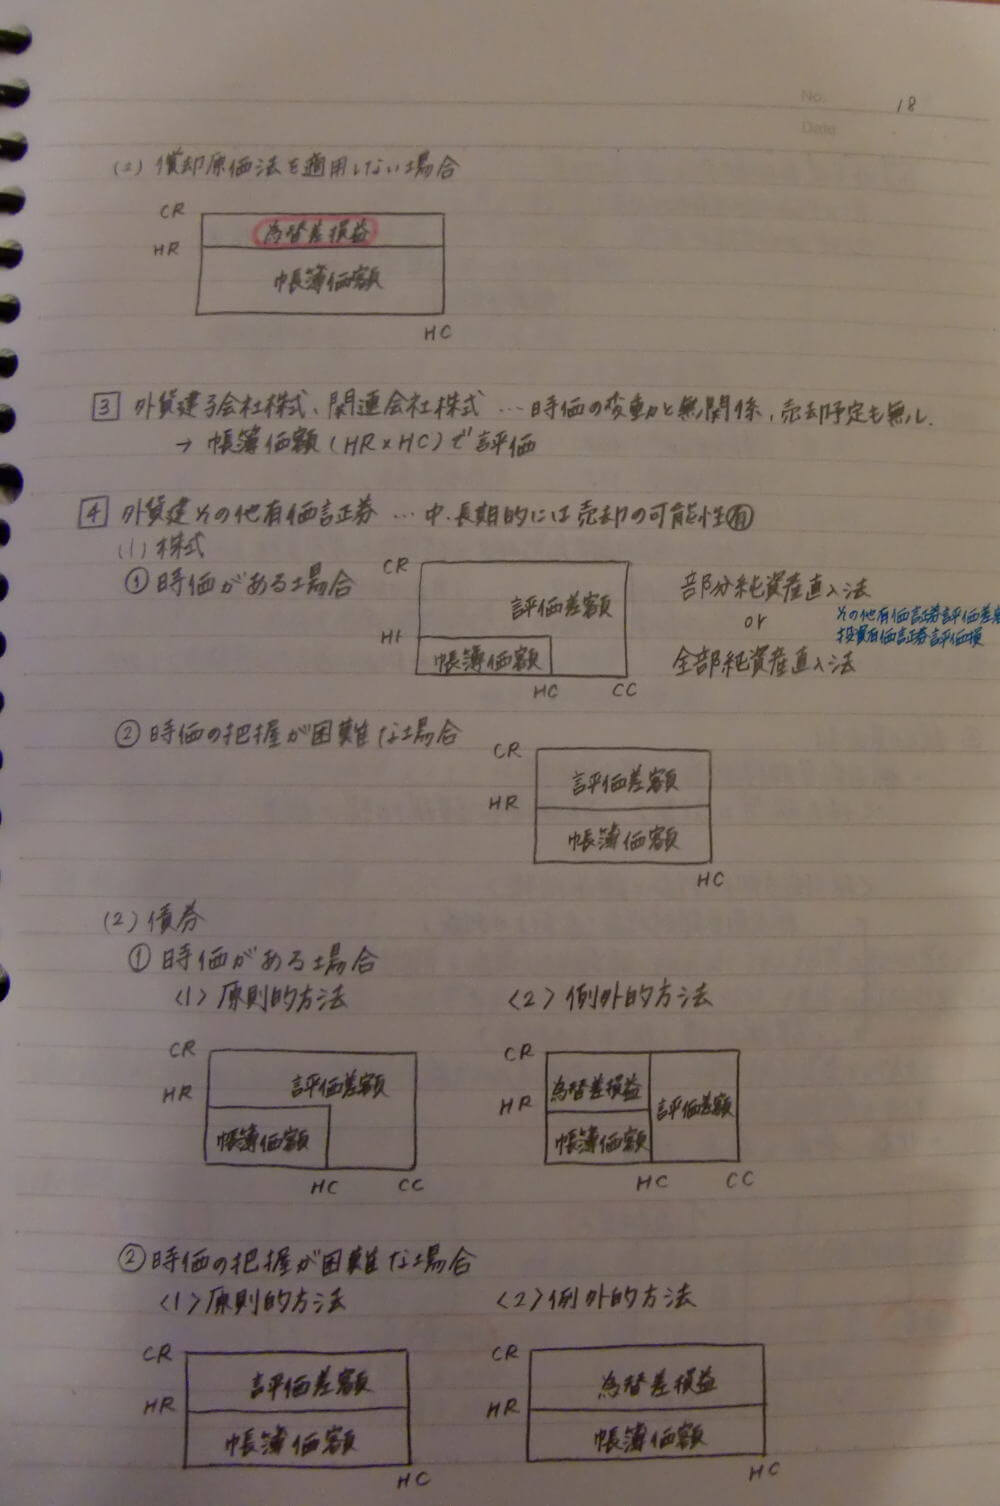 No. 18
Date
(2) 償却原価法を適用しない場合
CR
為替差損益
HR
帳簿価額
HC
3 外貨建子会社株式、関連会社株式 … 時価の変動と無関係、売却予定も無し
→ 帳簿価額(HR×HC)で評価
4 外貨建その他有価証券 … 中・長期的には売却の可能性有
(1) 株式
① 時価がある場合
CR
評価差額
HR
帳簿価額
HC CC
部分純資産直入法
or
全部純資産直入法
その他有価証券評価差
投資有価証券評価損
② 時価の把握が困難な場合
CR
評価差額
HR
帳簿価額
HC
(2) 債券
① 時価がある場合
<1> 原則的方法 <2> 例外的方法
CR
評価差額
HR
帳簿価額
HC CC
CR
為替差損益
HR
評価差額
帳簿価額
HC CC
② 時価の把握が困難な場合
<1> 原則的方法 <2> 例外的方法
CR
評価差額
HR
帳簿価額
HC
CR
為替差損益
HR
帳簿価額
HC